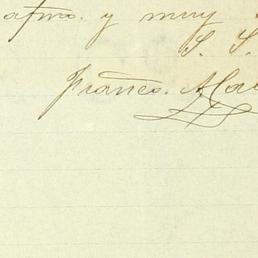 afmo. y muy
S. S.
Franco.